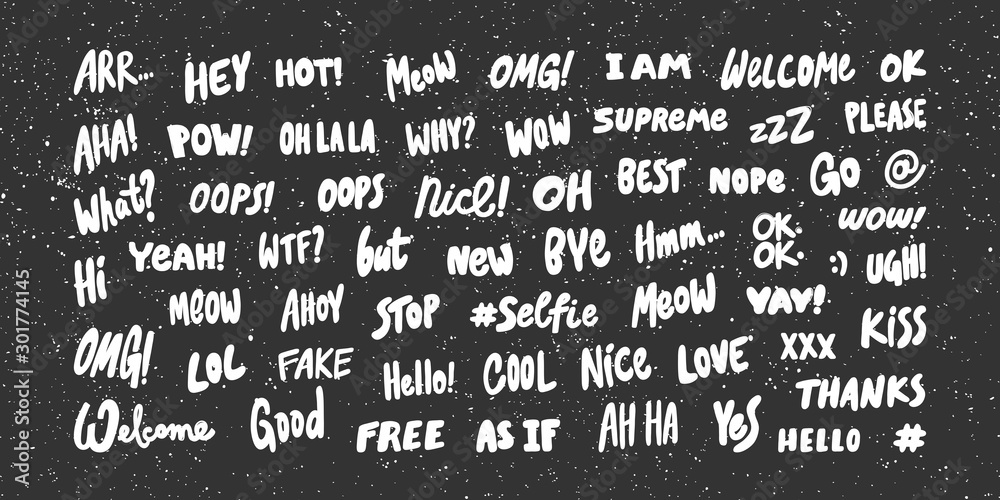 ARR... HEY HOT! Meow OMG! I AM Welcome OK
AHA! POW! OH LA LA WHY? WOW SUPReMe zzZ PLEASE
What? OOPS! OOPS Nice! OH BEST Nope Go @
Hi YEAH! WTF? but New BYe Hmm... OK. OK. :) WOW! UGH!
MeoW AHOY STOP #Selfie MeoW YAY! KiSS
OMG! LOL FAKE Hello! COOL Nice LOVE XXX THANKS
Welcome Good FREE AS IF AH HA YeS HELLO #
Adobe Stock | #301774145